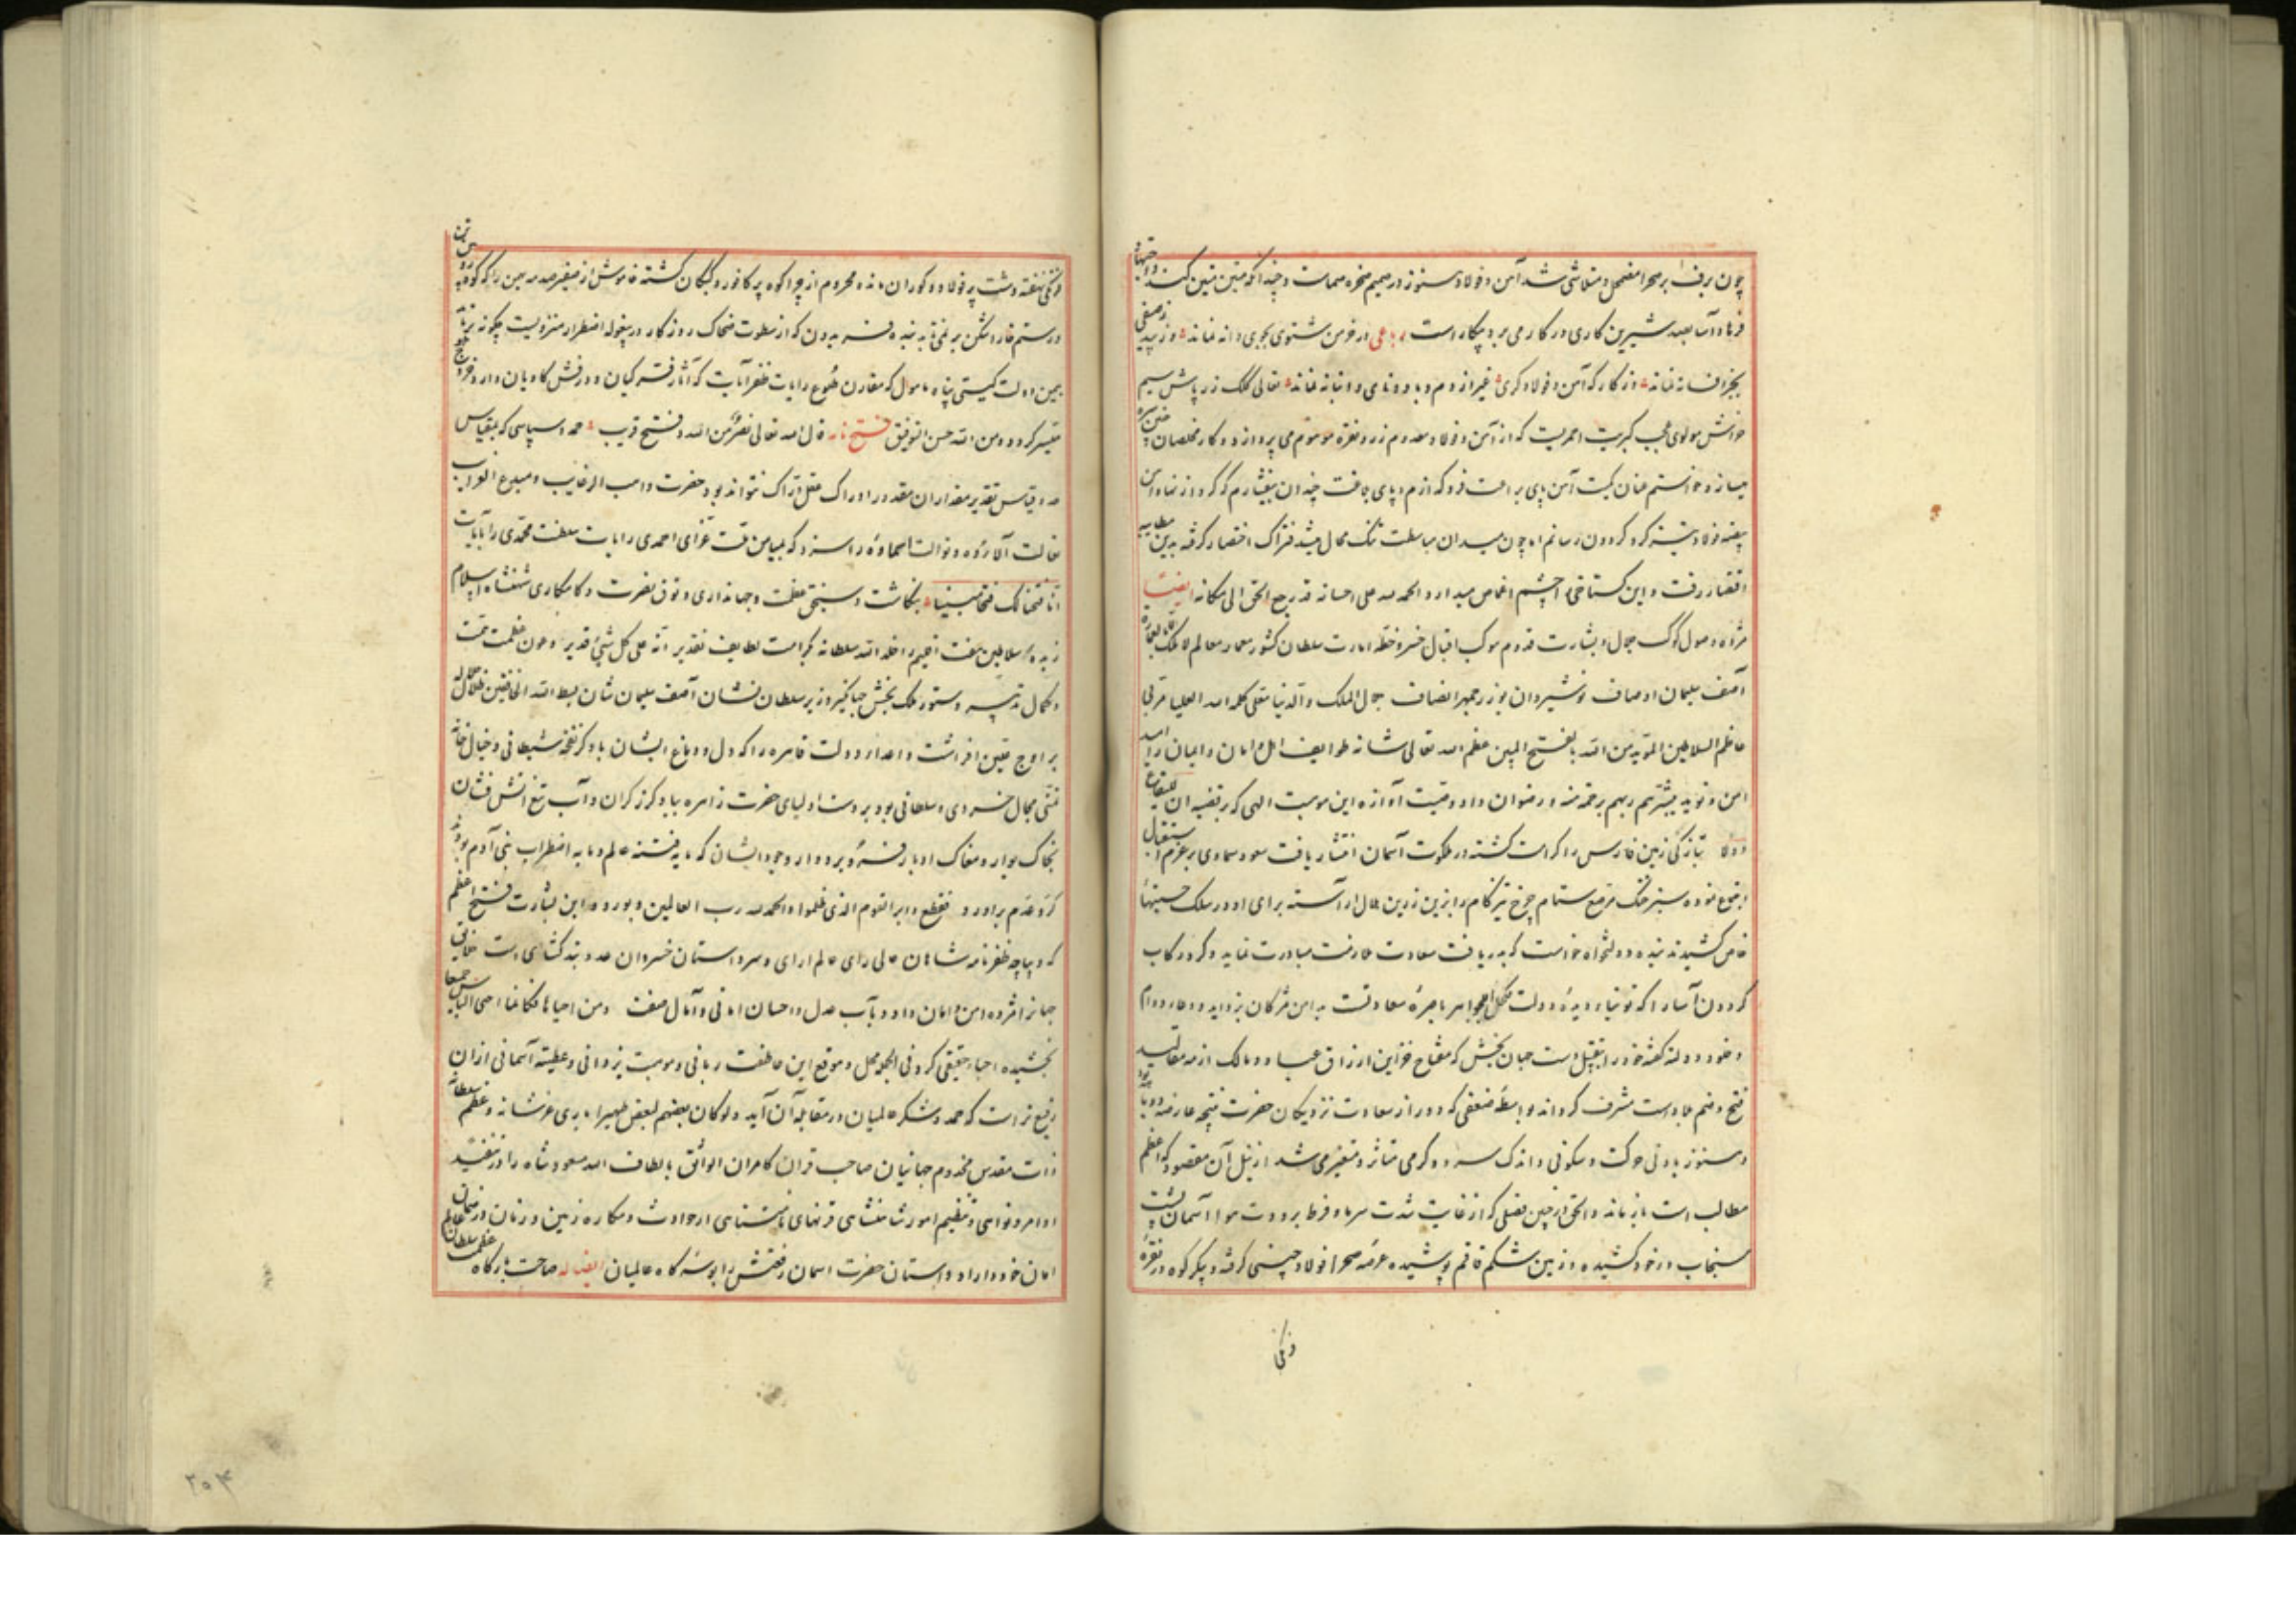 چون برف بر صحرا مضمحل و متلاشی شد آهن و فولاد هنوز در صمیم صخره صماست و چندانکه متین متین کند
فرهاد آسا بصد شیرین کاری در کار می برد بیکار است رباعی در خرمن مثنوی بجوی دانه نماند
بجز افسانه نماند وز کار که آهن و فولاد کری غیر از دم و باد و نامی و انبانه نماند تعالی کلک زر پاش سیم
خواهش مولوی عجب کبریت احمریست که از آهن و فولاد معدوم زر و نقره موهوم می پردازد و کار مخلصان
میسازد خواستم عنان کمیت آهن پای براعت فرو گذازم و پای بلاغت چندان بیفشارم که گرد از نهاد این
بیضه فولاد بیشه کرد گردون رسانم اما چون میدان مباسطت تنک مجال میشد فتراک اختصار گرفته بدین
اقتصار رفت و این گستاخی را چشم اغماض میدارد و الحمد لله علی احسانه قد رجع الحق الی مکانه ایضا
مژده وصول کوکب جلال و بشارت قدوم موکب اقبال خسرو خطه امارت سلطان کشور معمار معالم
آصف سلیمان اوصاف نوشیروان بوزرجمهر انصاف جلال الملک و الدنیا معلی کلمة الله العلیا مربی
اعاظم السلاطین المؤید من الله بالفتح المبین عظم الله تعالی شانه طوایف اهل امان و ایمان را
امن و نوید یبشرهم ربهم برحمة منه و رضوان داد و صیت آوازه این موهبت الهی که
بتازگی زمین فارس را کرامت گشته در ملکوت آسمان انتشار یافت سعود سماوی بر عزم استقبال
رجوع نموده سبز خنک مرصع ستام چرخ تیز کام را بزین زرین هلال آراسته برای او در سلک جنیبتهاء
خاص کشیدند بنده دولتخواه خواست که بدریافت سعادت ملازمت مبادرت نماید و گرد رکاب
گردون آسا را که توتیاء دیده دولت و کحل الجواهر باصره سعادتست به این مژگان بزداید و دعاء دوام
و خود و دولت گفته خود را بتقبیل دست جهان بخش که مفتاح خزاین ارزاق عباد و ممالک ازمه مقالید
فتح و ضم بلاد است مشرف گرداند بواسطه ضعفی که دور از سعادت نزدیکان حضرت نتیجه عارضه
و هنوز بادنی حرکت و سکونی و اندک سرد و گرمی متاثر و متغیر می شد از نیل آن مقصود که اعظم
مطالب است باز ماند و الحق در چنین فصلی که از غایت شدت سرما و فرط برودت هوا آسمان پشت
سنجاب در خود کشیده و زمین شکم قاقم پوشیده عرصه صحرا فولاد چینی گرفته و پیکر کوه در نقره
فرنگی
فرنگی نهفته دشت پر فولاد و گوران مانده محروم از چرا کوه پر کافور و کبکان گشته خاموش از صفیر
و رستم قار در شکن برنمی تابد بنده فسرده بدن که از سطوت ضحاک روزگار در بیغوله اضطرار منزویست چگونه
بیمن دولت گیتی پناه مامول که مقارن طلوع رایات ظفر آیات که آثار فر کیان و درفش کاویان دارد
میسر گردد و من الله حسن التوفیق فتح نامه قال الله تعالی نصر من الله و فتح قریب حمد و سپاسی که بمقیاس
حد و قیاس تقدیر مقداران مقدور ادراک عقل دراک نتواند بود حضرت واهب الرغایب و مبدع الغرایب
تعالت آلاؤه و توالت اسماؤه را سزد که بمیامن ملت غرای احمدی رایات سلطنت محمدی را بآیات
انا فتحنا لک فتحا مبینا بنگاشت و سنجق عظمت و جهانداری و طوق نصرت و کامکاری شهنشاه اسلام
زبده سلاطین هفت اقلیم خلد الله سلطانه بکرامت لطایف تقدیر انه علی کل شیء قدیر و عون عظمت همت
و کمال تدبیر دستور ملک بخش جهانگیر وزیر سلطان نشان آصف سلیمان شان بسط الله الخافقین ظلال جلاله
بر اوج یقین افراشت و اعداء دولت قاهره را که دل و دماغ ایشان باد کر نفخه شیطانی و خیال خانه
تمنی مجال خسروی و سلطانی بود بر دست اولیای حضرت زاهره بباد گرز گران و آب تیغ آتش فشان
بخاک بوار و مغاک ادبار فرو برد و از وجود ایشان که مایه فتنه عالم و مایه اضطراب بنی آدم بود
گرد عدم برآورد فقطع دابر القوم الذین ظلموا و الحمد لله رب العالمین و بورود این بشارت فتح اعظم
که دیباچه ظفرنامه شاهان عالی رای عالم آرای و سر داستان خسروان عدو بند کشتای است
جهانرا مژده امن و امان داد و بآب عدل و احسان امانی و آمال صفت و من احیاها فکانما احیی الناس جمیعا
بخشیده احیاء حقیقی کرد فی الجمله محل و موقع این عاطفت ربانی و موهبت یزدانی و عطیه آسمانی از آن
رفیع تر است که حمد و شکر عالمیان در مقابله آن آید و لو کان بعضهم لبعض ظهیرا باری عز شانه و عظم سلطانه
ذات مقدس مخدوم جهانیان صاحب قران کامران الواثق بالطاف الله مسعود شاه را در تنفیذ
اوامر و نواهی و تنظیم امور شاهنشاهی قرنهای نامتناهی از حوادث و مکاره زمین و زمان در ضمان
امان خود دارد و آستان حضرت آسمان رفعتش را بوسه گاه عالمیان ایضا له صاحت بارگاه
۲۰۴